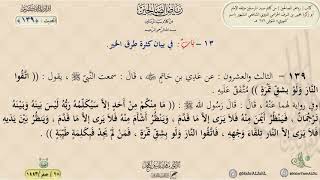 رياض الصالحين
الحديث
﴿ ١٣٩ ﴾
١٣ - باب : في بيان كثرة طرق الخير
١٣٩ - الثالث والعشرون : عن عدي بن حاتم ، قال : سمعت النبي ﷺ ، يقول : (( اتَّقُوا
النَّارَ وَلَوْ بِشِقِّ تَمْرَةٍ )) متفق عليه .
وفي رواية لهما عنه ، قال : قال رسول الله ﷺ : (( مَا مِنْكُمْ مِنْ أَحَدٍ إلاَّ سَيُكَلِّمُهُ رَبُّهُ لَيْسَ بَينَهُ وبَيْنَهُ
تَرْجُمَانٌ ، فَيَنْظُرُ أَيْمَنَ مِنْهُ فَلاَ يَرَى إلاَّ مَا قَدَّمَ ، وَيَنْظُرُ أَشْأَمَ مِنْهُ فَلاَ يَرى إلاَّ مَا قَدَّمَ ، وَيَنْظُرُ بَيْنَ يَدَيهِ
فَلاَ يَرَى إلاَّ النَّارَ تِلقَاءَ وَجْهِهِ ، فَاتَّقُوا النَّارَ وَلَوْ بِشِقِّ تَمْرَةٍ ، فَمَنْ لَمْ يَجِدْ فَبِكَلِمَةٍ طَيِّبَةٍ ))